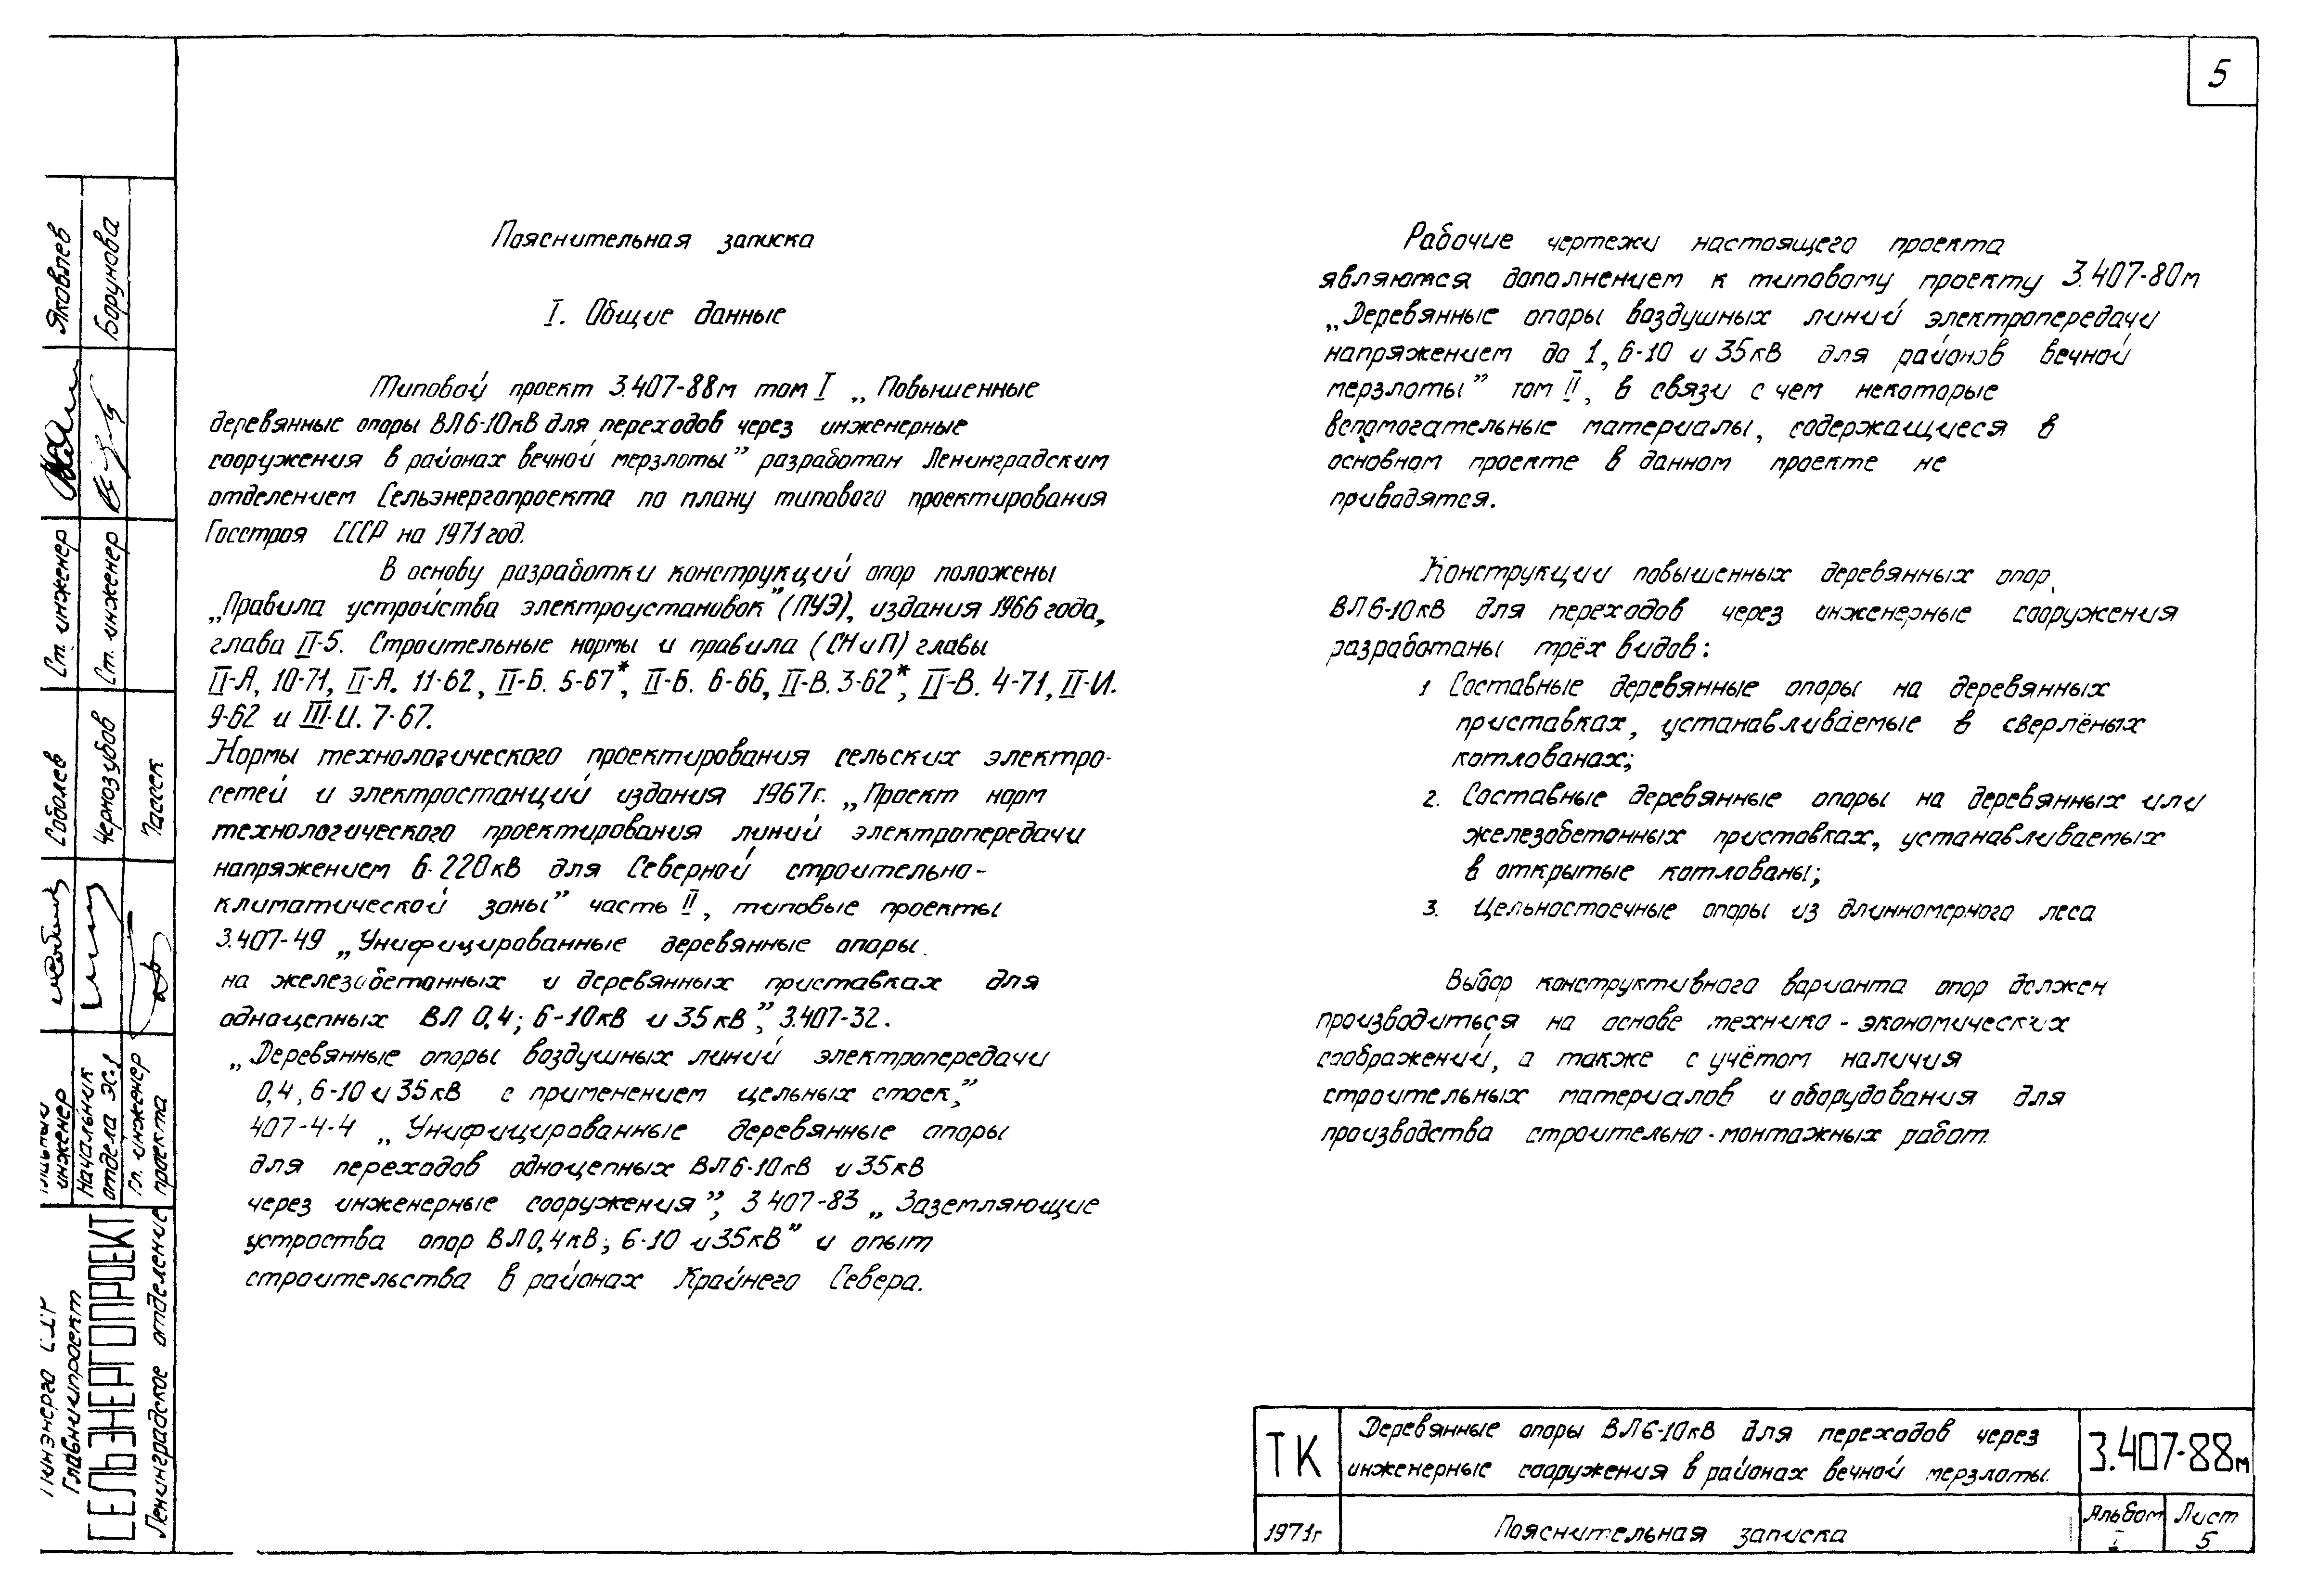 5
Пояснительная записка
I. Общие данные
Типовой проект 3.407-88м том I „Повышенные
деревянные опоры ВЛ 6-10кВ для переходов через инженерные
сооружения в районах вечной мерзлоты” разработан Ленинградским
отделением Сельэнергопроекта по плану типового проектирования
Госстроя СССР на 1971 год.
В основу разработки конструкций опор положены
„Правила устройства электроустановок” (ПУЭ), издания 1966 года,
глава II-5. Строительные нормы и правила (СНиП) главы
II-А, 10-71, II-А. 11-62, II-Б. 5-67*, II-Б. 6-66, II-В. 3-62*, II-В. 4-71, II-И.
9-62 и III-И. 7-67.
Нормы технологического проектирования сельских электро-
сетей и электростанций издания 1967г. „Проект норм
технологического проектирования линий электропередачи
напряжением 6-220кВ для Северной строительно-
климатической зоны” часть II, типовые проекты
3.407-49 „Унифицированные деревянные опоры.
на железобетонных и деревянных приставках для
одноцепных ВЛ 0,4; 6-10кВ и 35кВ”, 3.407-32.
„Деревянные опоры воздушных линий электропередачи
0,4, 6-10 и 35кВ с применением цельных стоек,”
407-4-4 „Унифицированные деревянные опоры
для переходов одноцепных ВЛ 6-10кВ и 35кВ
через инженерные сооружения”, 3 407-83 „Заземляющие
устроства опор ВЛ 0,4кВ; 6-10 и 35кВ” и опыт
строительства в районах Крайнего Севера.
Рабочие чертежи настоящего проекта
являются дополнением к типовому проекту 3.407-80м
„Деревянные опоры воздушных линий электропередачи
напряжением до 1, 6-10 и 35кВ для районов вечной
мерзлоты” том II, в связи с чем некоторые
вспомогательные материалы, содержащиеся в
основном проекте в данном проекте не
приводятся.
Конструкции повышенных деревянных опор
ВЛ 6-10кВ для переходов через инженерные сооружения
разработаны трёх видов:
1 Составные деревянные опоры на деревянных
приставках, устанавливаемые в сверлёных
котлованах;
2. Составные деревянные опоры на деревянных или
железобетонных приставках, устанавливаемых
в открытые котлованы;
3. Цельностоечные опоры из длинномерного леса
Выбор конструктивного варианта опор должен
производиться на основе технико-экономических
соображений, а также с учётом наличия
строительных материалов и оборудования для
производства строительно-монтажных работ.
ТК
Деревянные опоры ВЛ 6-10кВ для переходов через
инженерные сооружения в районах вечной мерзлоты.
3.407-88м
1971г
Пояснительная записка
Альбом
I
Лист
5
Яковлев
Борунова
Ст. инженер
Ст. инженер
Соболев
Чернозубов
Паассек
инженер
Начальник
отдела ЭС-1
Гл. инженер
проекта
Главниипроект
СЕЛЬЭНЕРГОПРОЕКТ
Ленинградское отделение